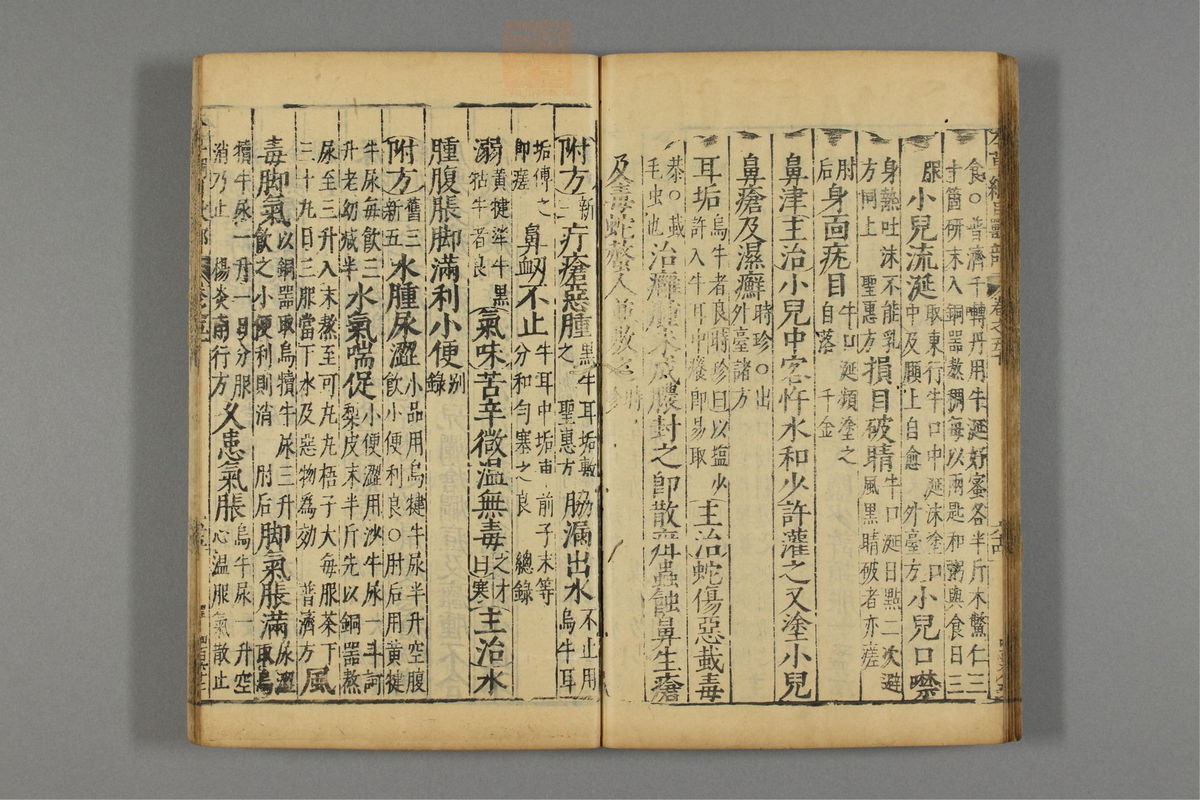 食○普濟千轉丹用牛涎好蜜各半斤木鱉仁三
十箇研末入銅器熬稠每以兩匙和粥與食日三
服 小兒流涎 取東行牛口中涎沫塗口中及頤上自愈 外臺方 小兒口噤
身熱吐沫不能乳方同上 聖惠方 損目破睛 牛口涎日點二次避風黑睛破者亦瘥
肘后 身面疣目 牛口涎頻塗之自落 千金
鼻津主治小兒中客忤水和少許灌之又塗小兒
鼻瘡及濕癬 時珍○出外臺諸方
耳垢 烏牛者良時珍曰以塩少許入牛耳中癢即易取 主治蛇傷惡蛓毒
恭○蛓毛虫也 治癰腫未成膿封之即散疳蟲蝕鼻生瘡
及毒蛇螫人並敷之 時珍
附方新二 疔瘡惡腫 黑牛耳垢敷之 聖惠方 脇漏出水 不止用烏牛耳
垢傅之即瘥 鼻衂不止 牛耳中垢車前子末等分和匀塞之良 總錄
溺 黃犍㸺牛黑牯牛者良 氣味苦辛微溫無毒 之才曰寒 主治水
腫腹脹脚滿利小便 别錄
附方舊三新五 水腫尿澀 小品用烏犍牛尿半升空腹飲小便利良○肘后用黃犍
牛尿每飲三升老幼減半 水氣喘促 小便澀用沙牛尿一斗訶梨皮末半斤先以銅器熬
尿至三升入末熬至可丸丸梧子大每服茶下三十丸日三服當下水及惡物爲効 普濟方 風
毒脚氣 以銅器取烏犢牛尿三升飲之小便利則消 肘后 脚氣脹滿 尿澀取烏
犢牛尿一升一日分服消乃止 楊炎南行方 久患氣脹 烏牛尿一升空心溫服氣散止